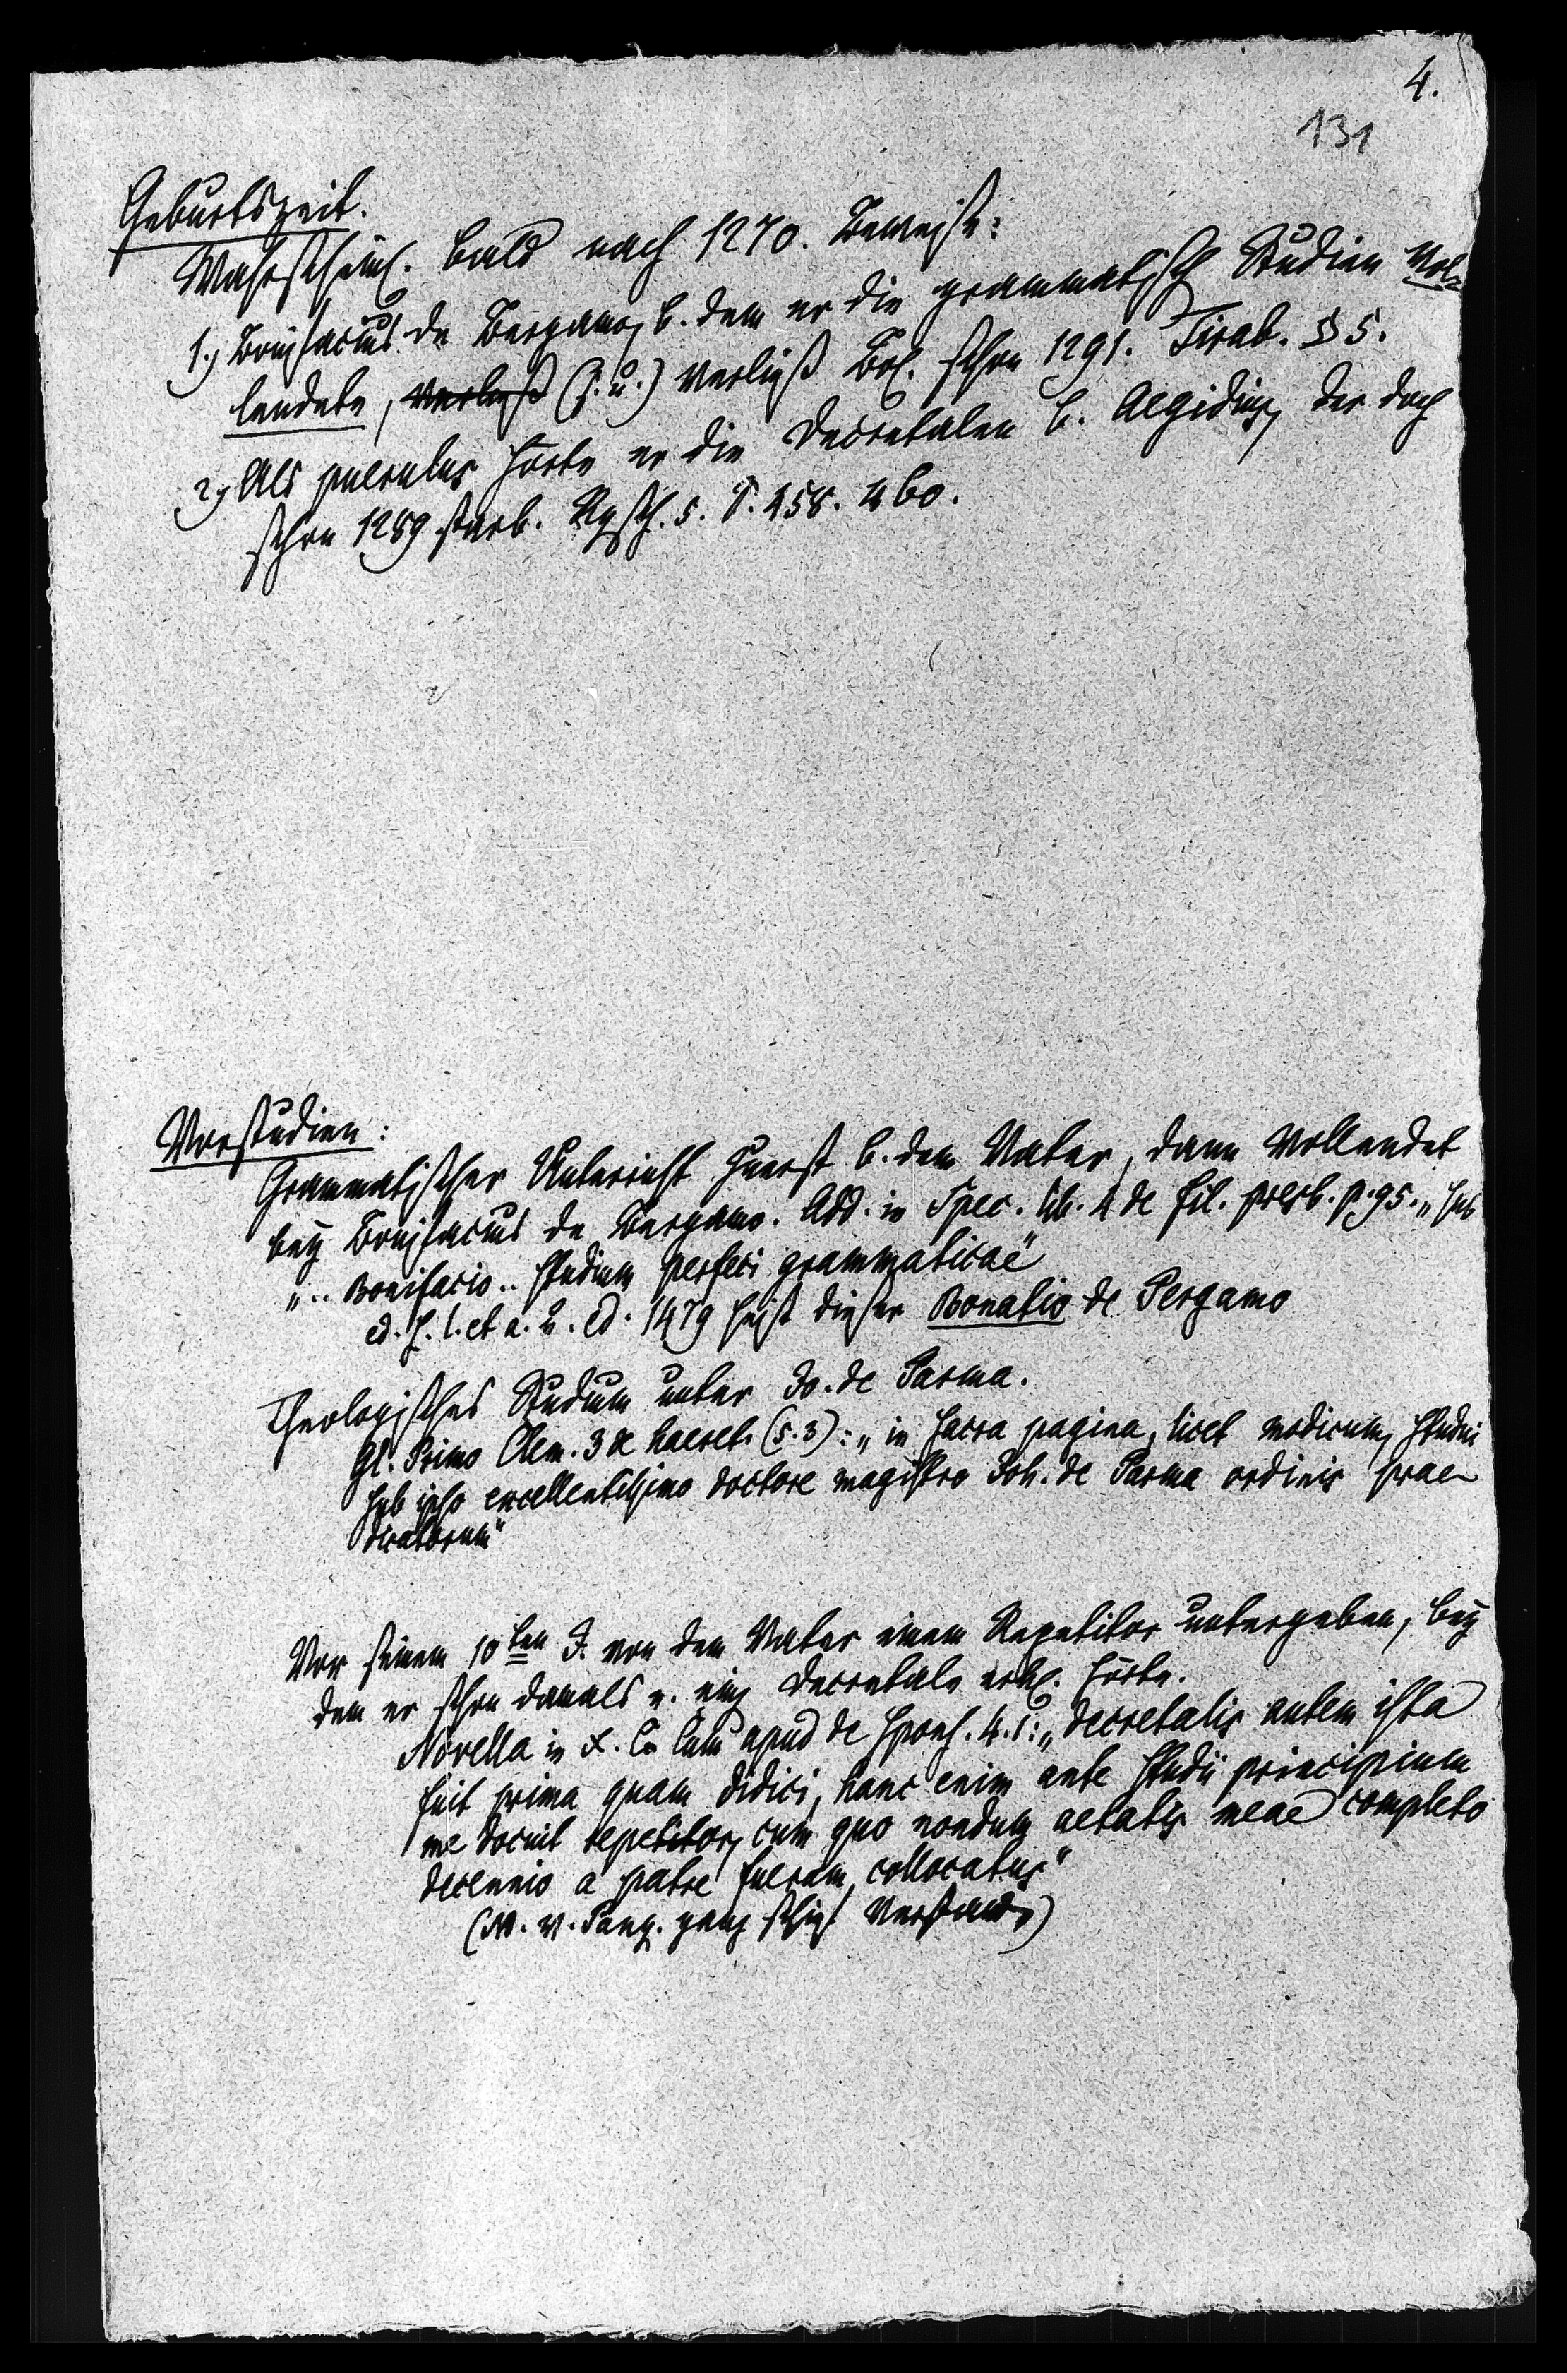 4.
131
Geburtszeit.
Wahrscheinl. bald nach 1270. Beweise:
1.) Bonifacius de Bergamo, b. dem er die grammatische Studien vol-
lendete, verließ (s. u.) verließ Bol. schon 1291. Tirab. § 5.
2.) Als puerulus hörte er die Decretalen b. Aegidius, der doch
schon 1289 starb. Rgsch. 5. S. 458. 460.
Vorstudien:
Grammatischer Unterricht zuerst b. dem Vater, dann vollendet
bey Bonifacius de Bergamo. Add. in Spec. lib. 4 de fil. presb. p. 95. „sub
„.. Bonifacio .. studium perfeci grammaticae"
ed. s. l. et a. u. ed. 1479 heist dieser Bonatio de Pergamo
Theologisches Studium unter Jo. de Parma.
Gl. Primo Clem. 3 de haeret. (5. 3): „in sacra pagina, licet modicum, studui
sub ipso excellentissimo doctore magistro Joh. de Parma ordinis prae-
dicatorum"
Vor seinem 10ten J. von dem Vater einem Repetitor untergeben, bey
dem er schon damals e. einz. Decretale erkl. hörte.
Novella in X. C. cum apud de spons. 4. 1: „decretalis autem ista
fuit prima quam didici, hanc enim ante studii principium
me docuit repetitor, cum quo nondum aetatis meae completo
decennio a patre fueram collocatus"
(M. v. Panz. ganz schief verstanden)